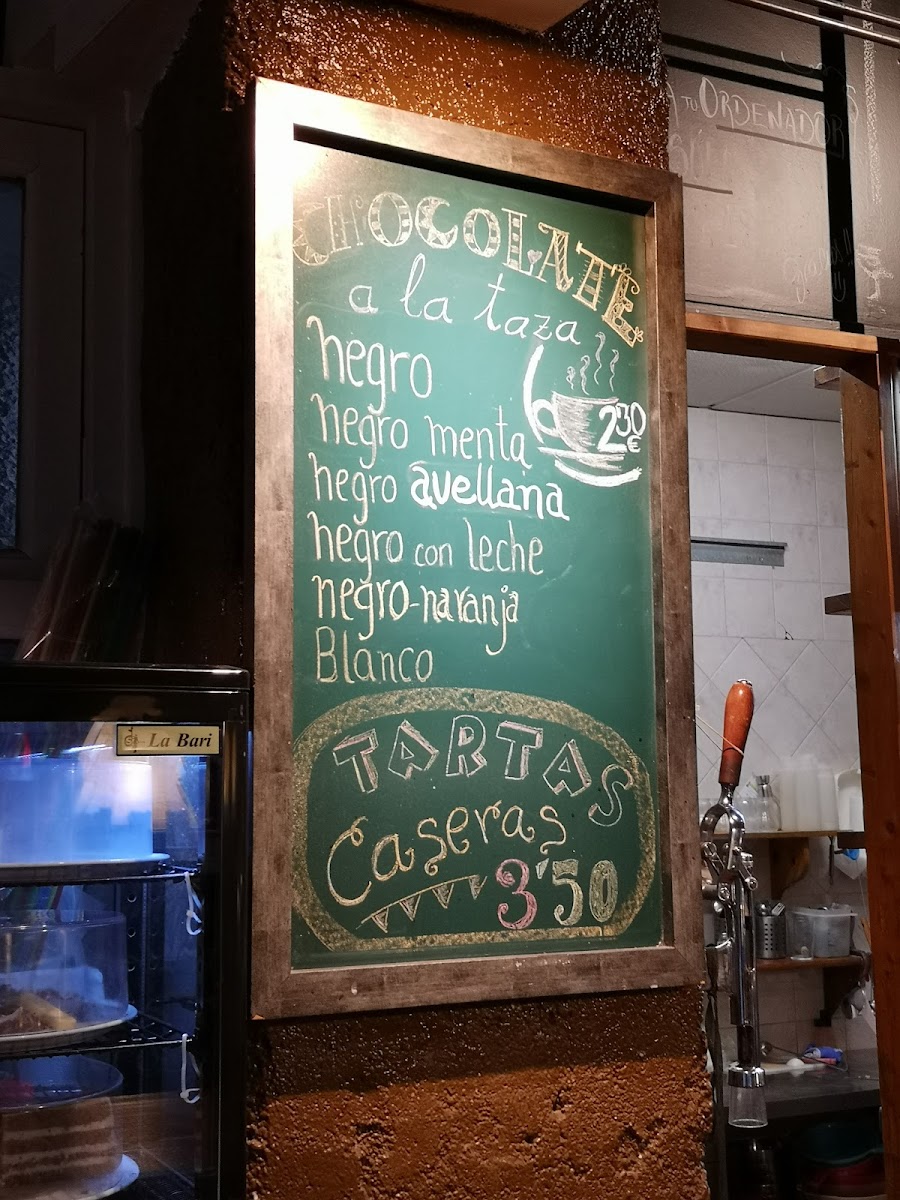 CHOCOLATE
a la taza
negro
negro menta
2'30
€
negro avellana
negro con leche
negro-naranja
Blanco
TARTAS
Caseras
3'50
La Bari
TU ORDENADOR